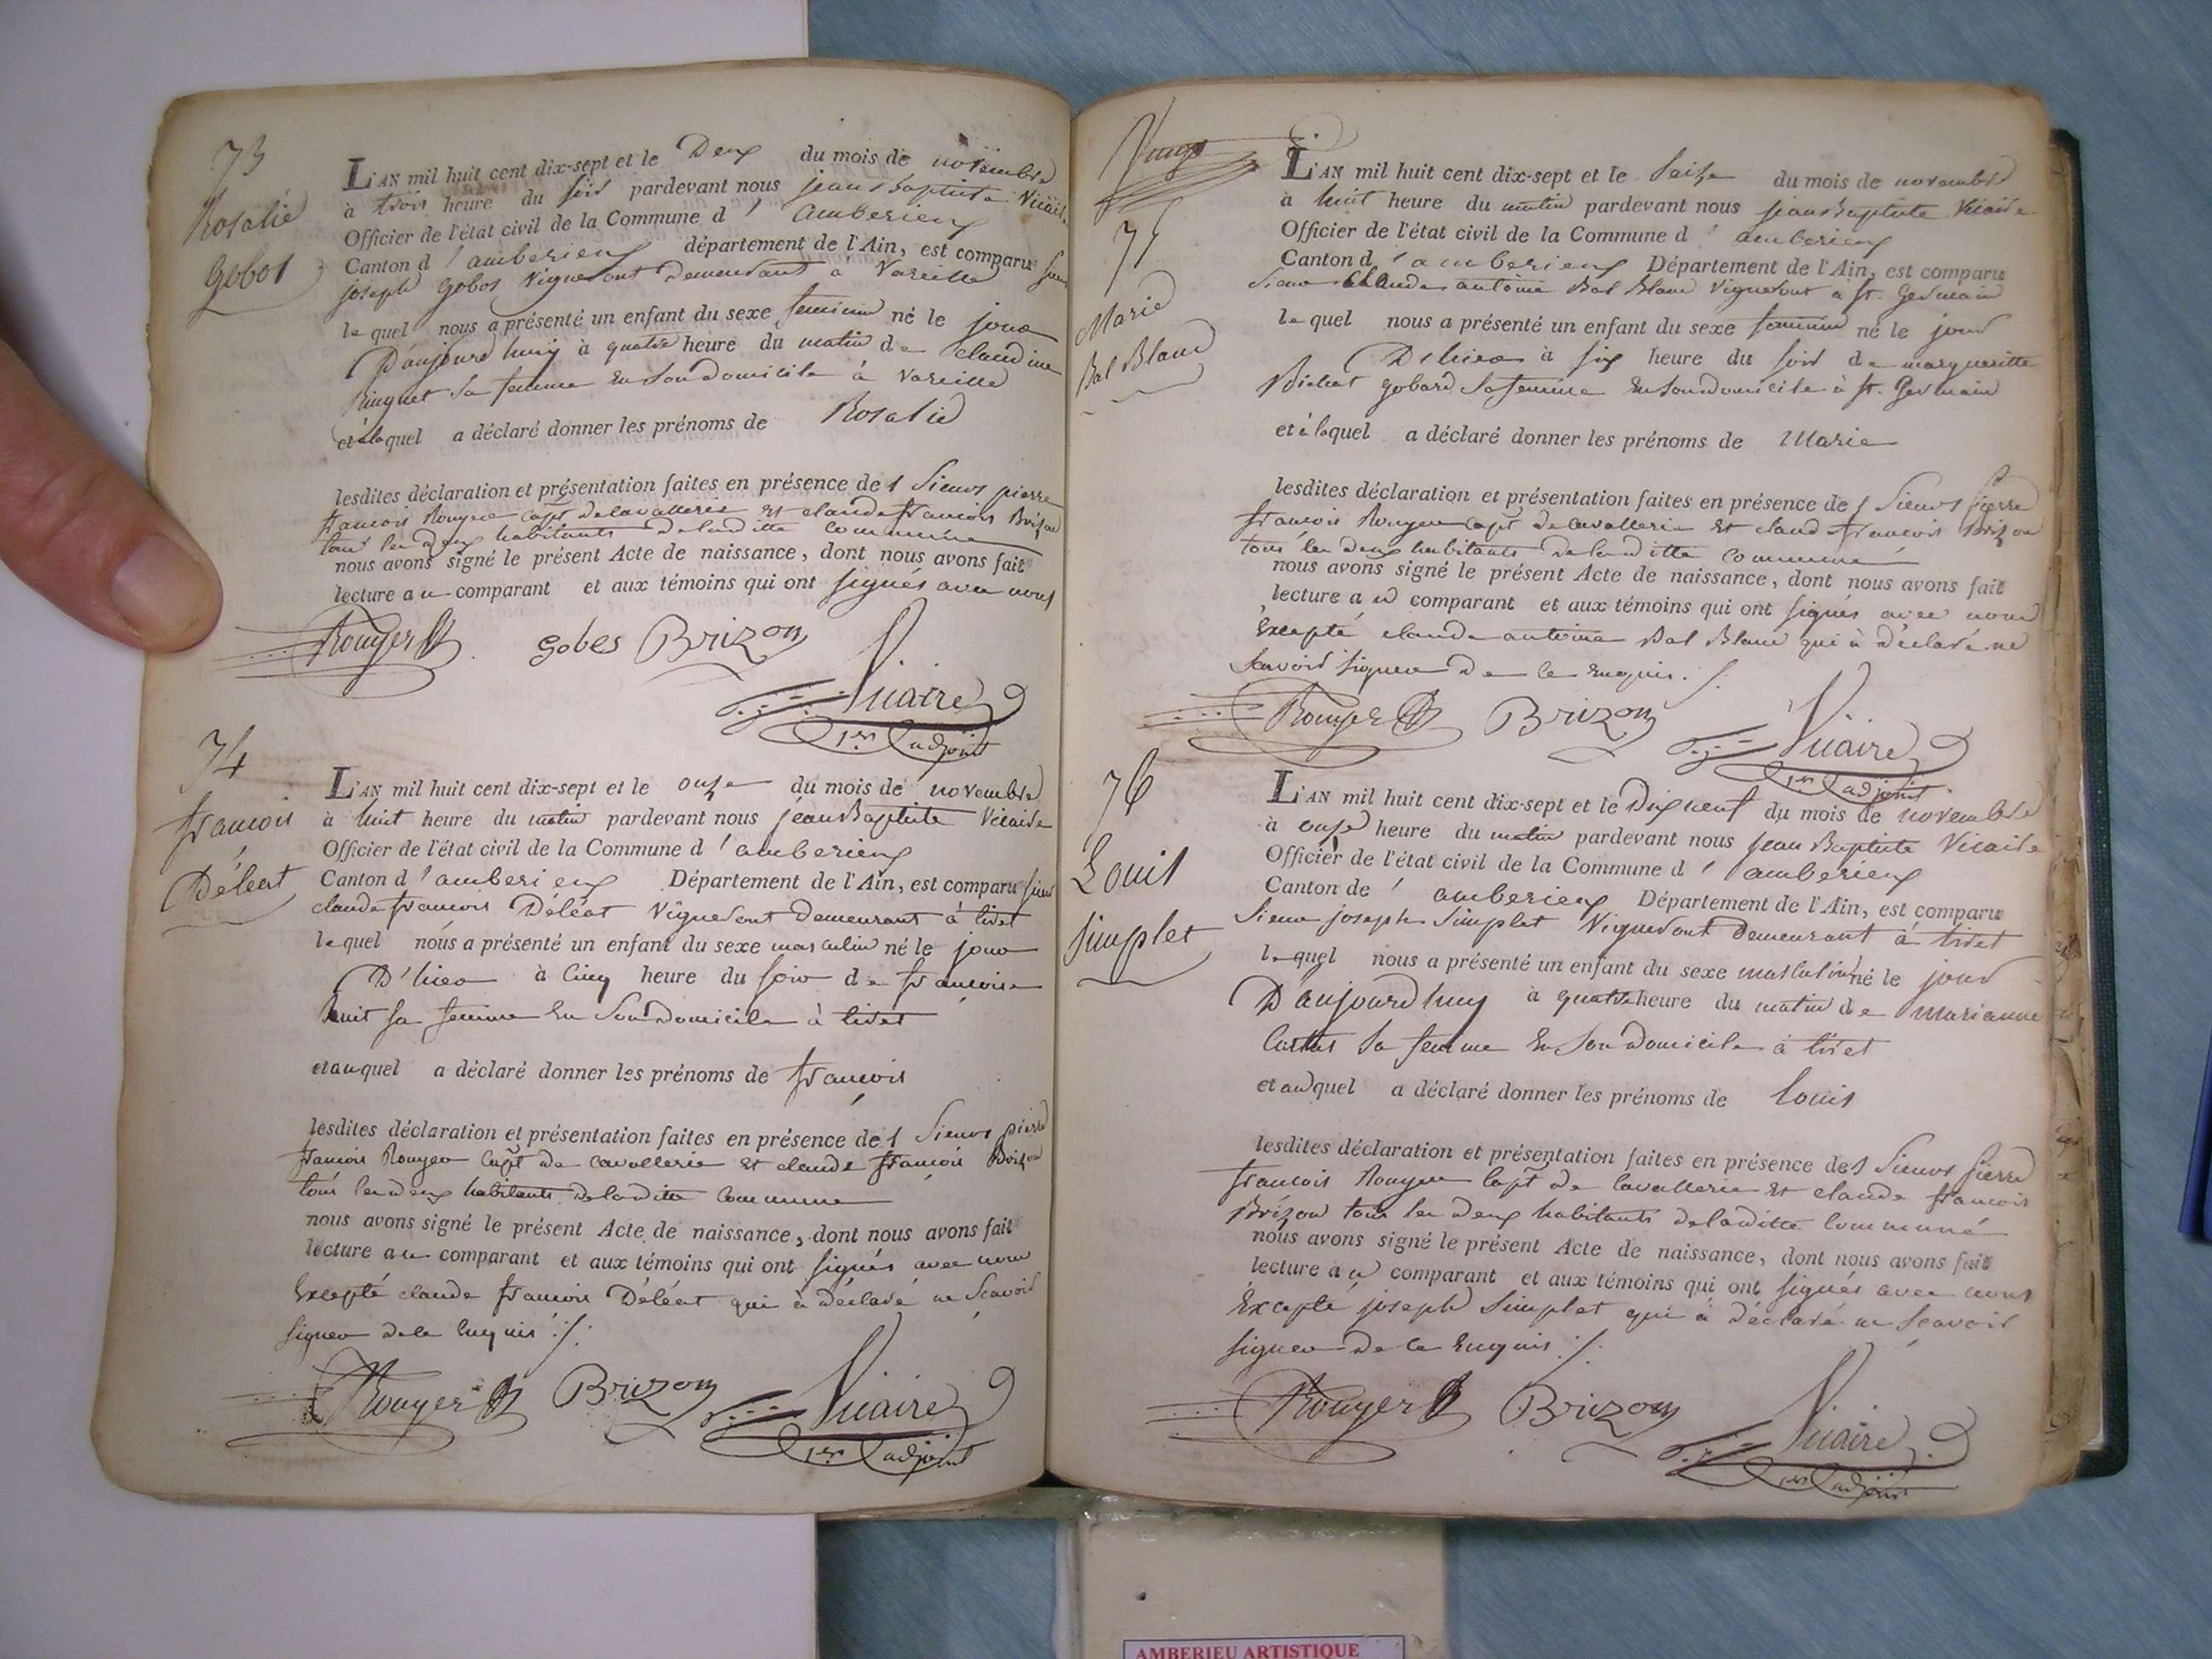 73
Rosalie
Gobos
L'AN mil huit cent dix-sept et le Deux du mois de novembre
à trois heure du soir pardevant nous jean Baptiste Vicaire
Officier de l'état civil de la Commune d' amberieux
Canton d' amberieux département de l'Ain, est comparu sieur
joseph gobos Vigneront demeurant à Vareille
lequel nous a présenté un enfant du sexe feminin né le jour
D'aujourd'huy à quatre heure du matin de claudine
sa femme en son domicile à Vareille
et à laquel a déclaré donner les prénoms de Rosalie
lesdites déclaration et présentation faites en présence des Sieurs pierre
francois Rouyer capt de cavallerie et claude francois Brizon
tous les deux habitants de la ditte commune
nous avons signé le présent Acte de naissance, dont nous avons fait
lecture au comparant et aux témoins qui ont signés avec nous
Rouyer gobes Brizon
Vicaire
1er adjoint
74
francois
Déléat
L'AN mil huit cent dix-sept et le onze du mois de novembre
à huit heure du matin pardevant nous jean Baptiste Vicaire
Officier de l'état civil de la Commune d' amberieux
Canton d' amberieux Département de l'Ain, est comparu sieur
claude francois Déléat Vigneront demeurant à tiret
lequel nous a présenté un enfant du sexe masculin né le jour
D'hier à cinq heure du soir de francoise
sa femme en son domicile à tiret
et auquel a déclaré donner les prénoms de francois
lesdites déclaration et présentation faites en présence des Sieurs pierre
francois Rouyer capt de cavallerie et claude francois Brizon
tous les deux habitants de la ditte commune
nous avons signé le présent Acte de naissance, dont nous avons fait
lecture au comparant et aux témoins qui ont signés avec nous
Excepté claude francois Déléat qui à déclaré ne scavoir
signer de ce enquis ./.
Rouyer Brizon Vicaire
1er adjoint
75
Marie
Bal Blanc
L'AN mil huit cent dix-sept et le seize du mois de novembre
à huit heure du matin pardevant nous jean Baptiste Vicaire
Officier de l'état civil de la Commune d' amberieux
Canton d' amberieux Département de l'Ain, est comparu
Sieur Claude antoine Bal Blanc Vigneront à St. Germain
lequel nous a présenté un enfant du sexe feminin né le jour
D'hier à six heure du soir de margueritte
gobard sa femme en son domicile à St. Germain
et à laquel a déclaré donner les prénoms de Marie
lesdites déclaration et présentation faites en présence des Sieurs pierre
francois Rouyer capt de cavallerie et claude francois Brizon
tous les deux habitants de la ditte commune
nous avons signé le présent Acte de naissance, dont nous avons fait
lecture au comparant et aux témoins qui ont signés avec nous
Excepté claude antoine Bal Blanc qui à déclaré ne
scavoir signer de ce enquis ./.
Rouyer Brizon Vicaire
1er adjoint
76
Louis
Simplet
L'AN mil huit cent dix-sept et le Dix neuf du mois de novembre
à onze heure du matin pardevant nous jean Baptiste Vicaire
Officier de l'état civil de la Commune d' amberieux
Canton de' amberieux Département de l'Ain, est comparu
Sieur joseph Simplet Vigneront demeurant à tiret
lequel nous a présenté un enfant du sexe masculin né le jour
D'aujourd'huy à quatre heure du matin de marianne
sa femme en son domicile à tiret
et auquel a déclaré donner les prénoms de Louis
lesdites déclaration et présentation faites en présence des Sieurs pierre
francois Rouyer capt de cavallerie et claude francois
Brizon tous les deux habitants de la ditte commune
nous avons signé le présent Acte de naissance, dont nous avons fait
lecture au comparant et aux témoins qui ont signés avec nous
Excepté joseph Simplet qui à déclaré ne scavoir
signer de ce enquis ./.
Rouyer Brizon Vicaire
1er adjoint
AMBERIEU ARTISTIQUE